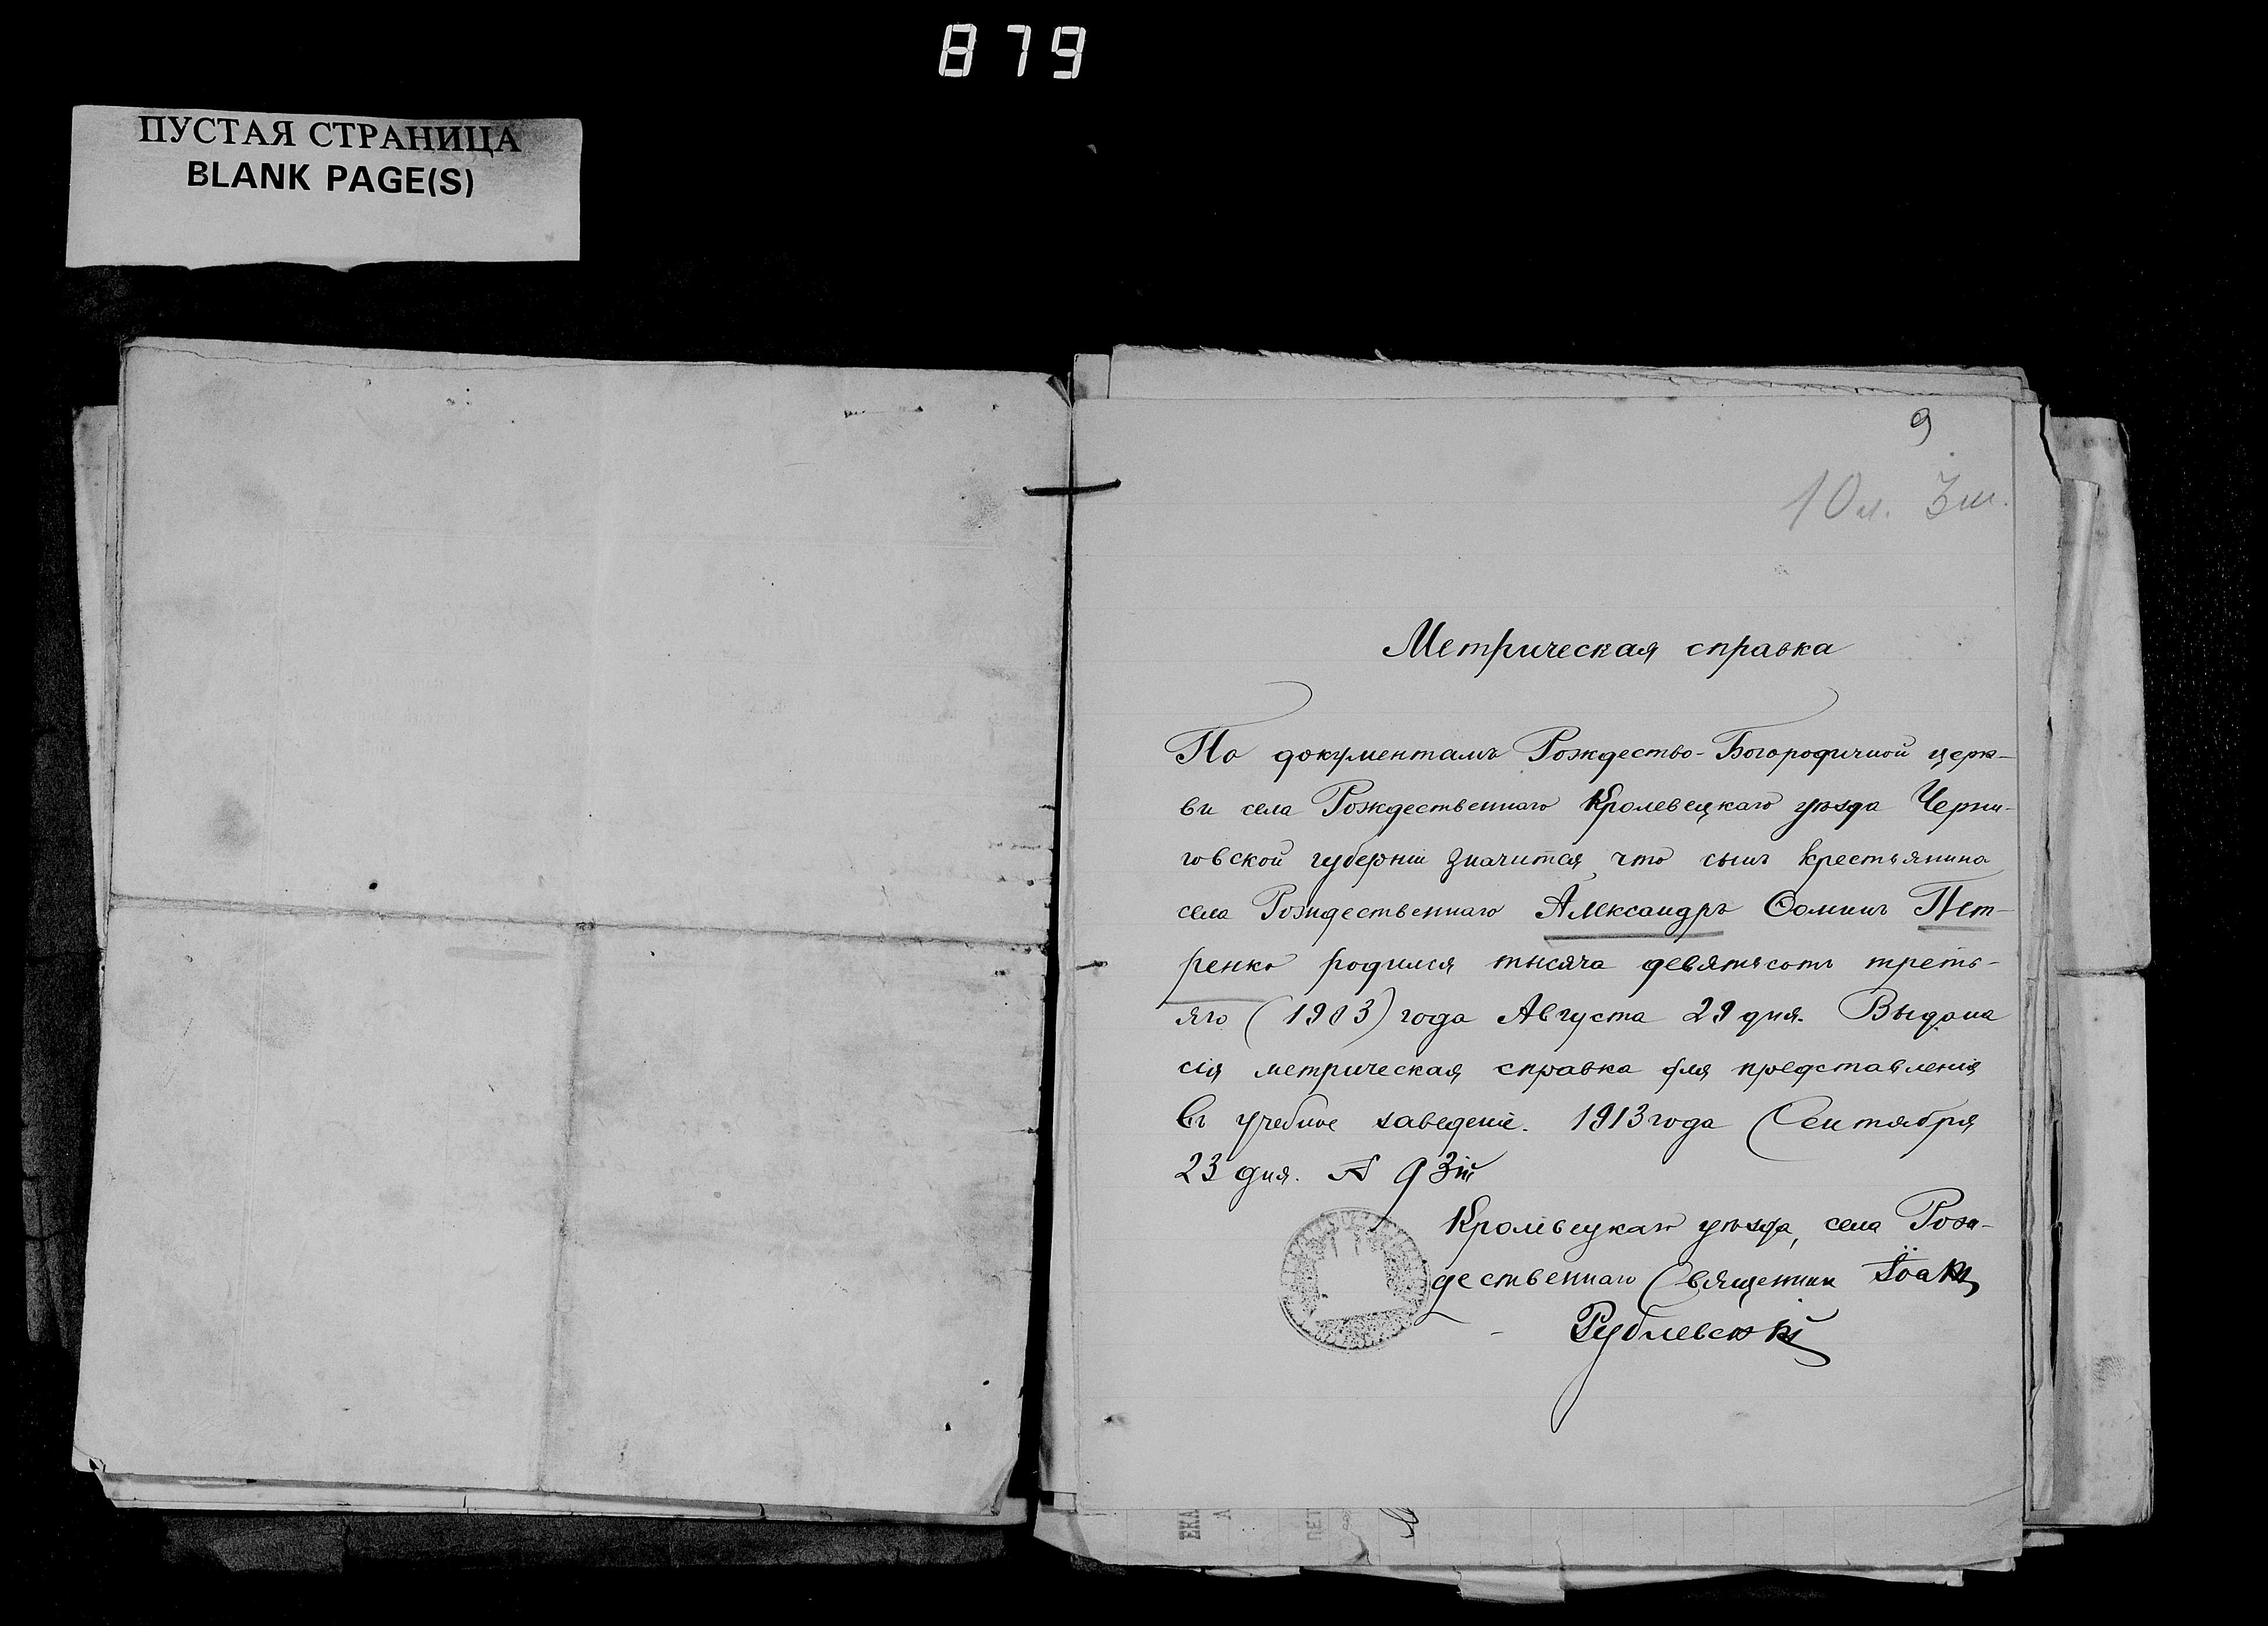 879
ПУСТАЯ СТРАНИЦА
BLANK PAGE(S)
9
10 л. 3 м.
Метрическая справка
По документамъ Рождество-Богородичной церк-
ви села Рождественнаго Кролевецкаго уѣзда Черни-
говской губерніи значится, что сынъ крестьянина
села Рождественнаго Александръ Ѳоминъ Пет-
ренко родился тысяча девятьсотъ треть-
яго (1903) года Августа 29 дня. Выдана
сія метрическая справка для представленія
въ учебное заведеніе. 1913 года Сентября
23 дня. №93й
Кролевецкаго уѣзда, села Рож-
дественнаго Священник
Рублевскій
ЕКА
ПЕТ